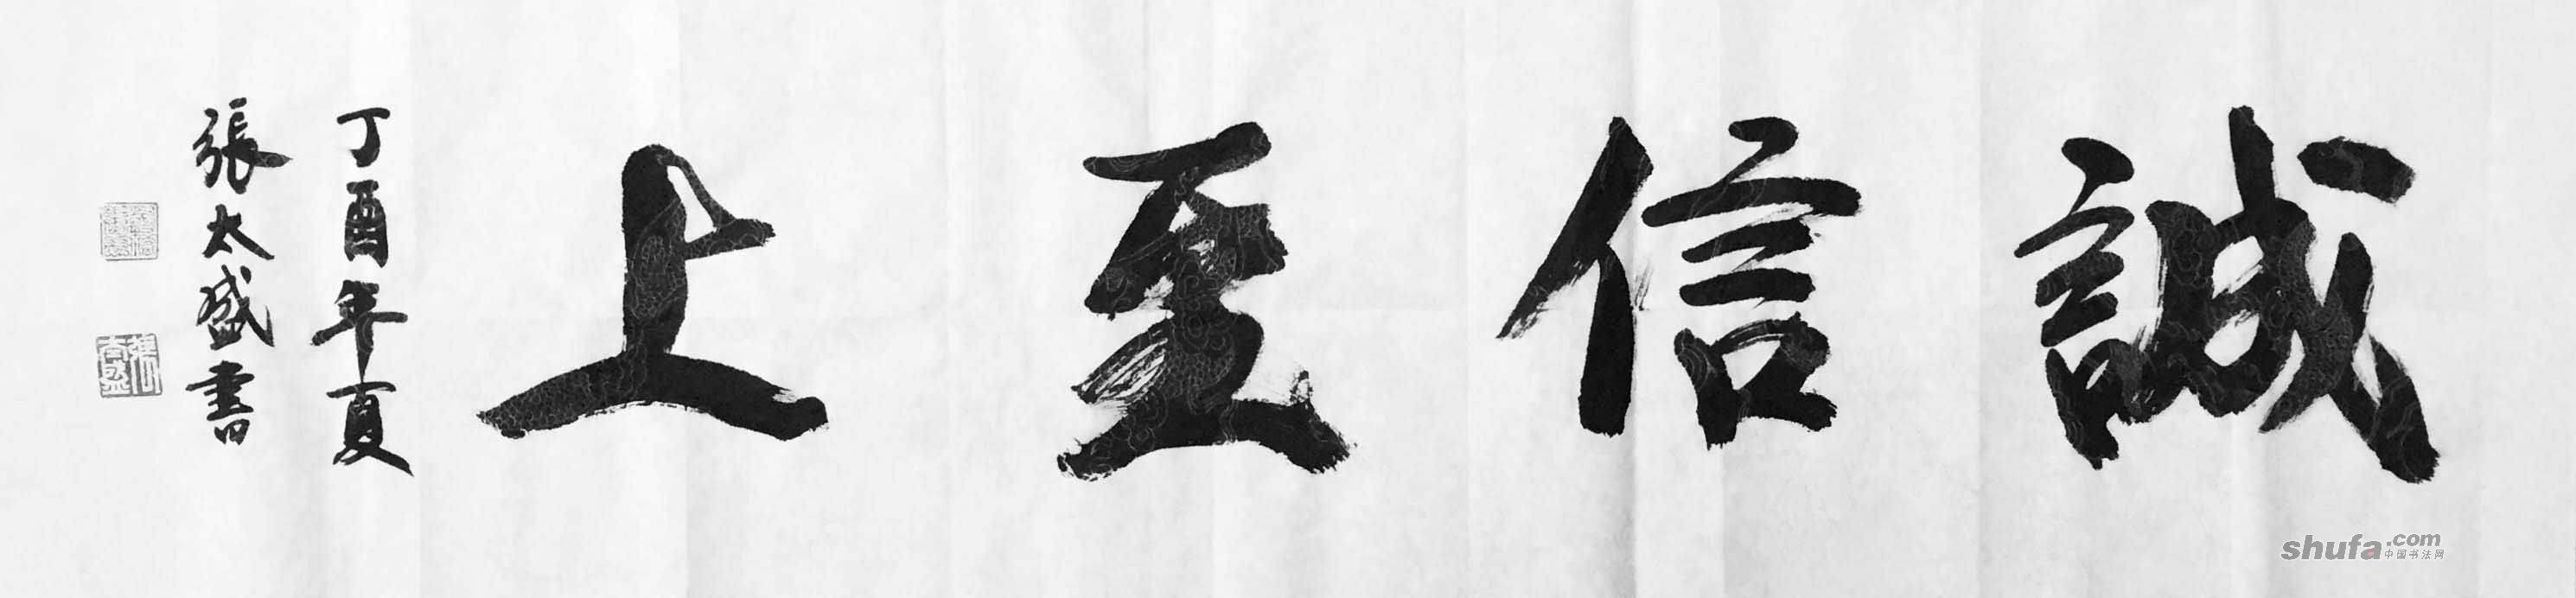 誠信至上
丁酉年夏
張太盛書
張太盛
shufa.com
中国书法网